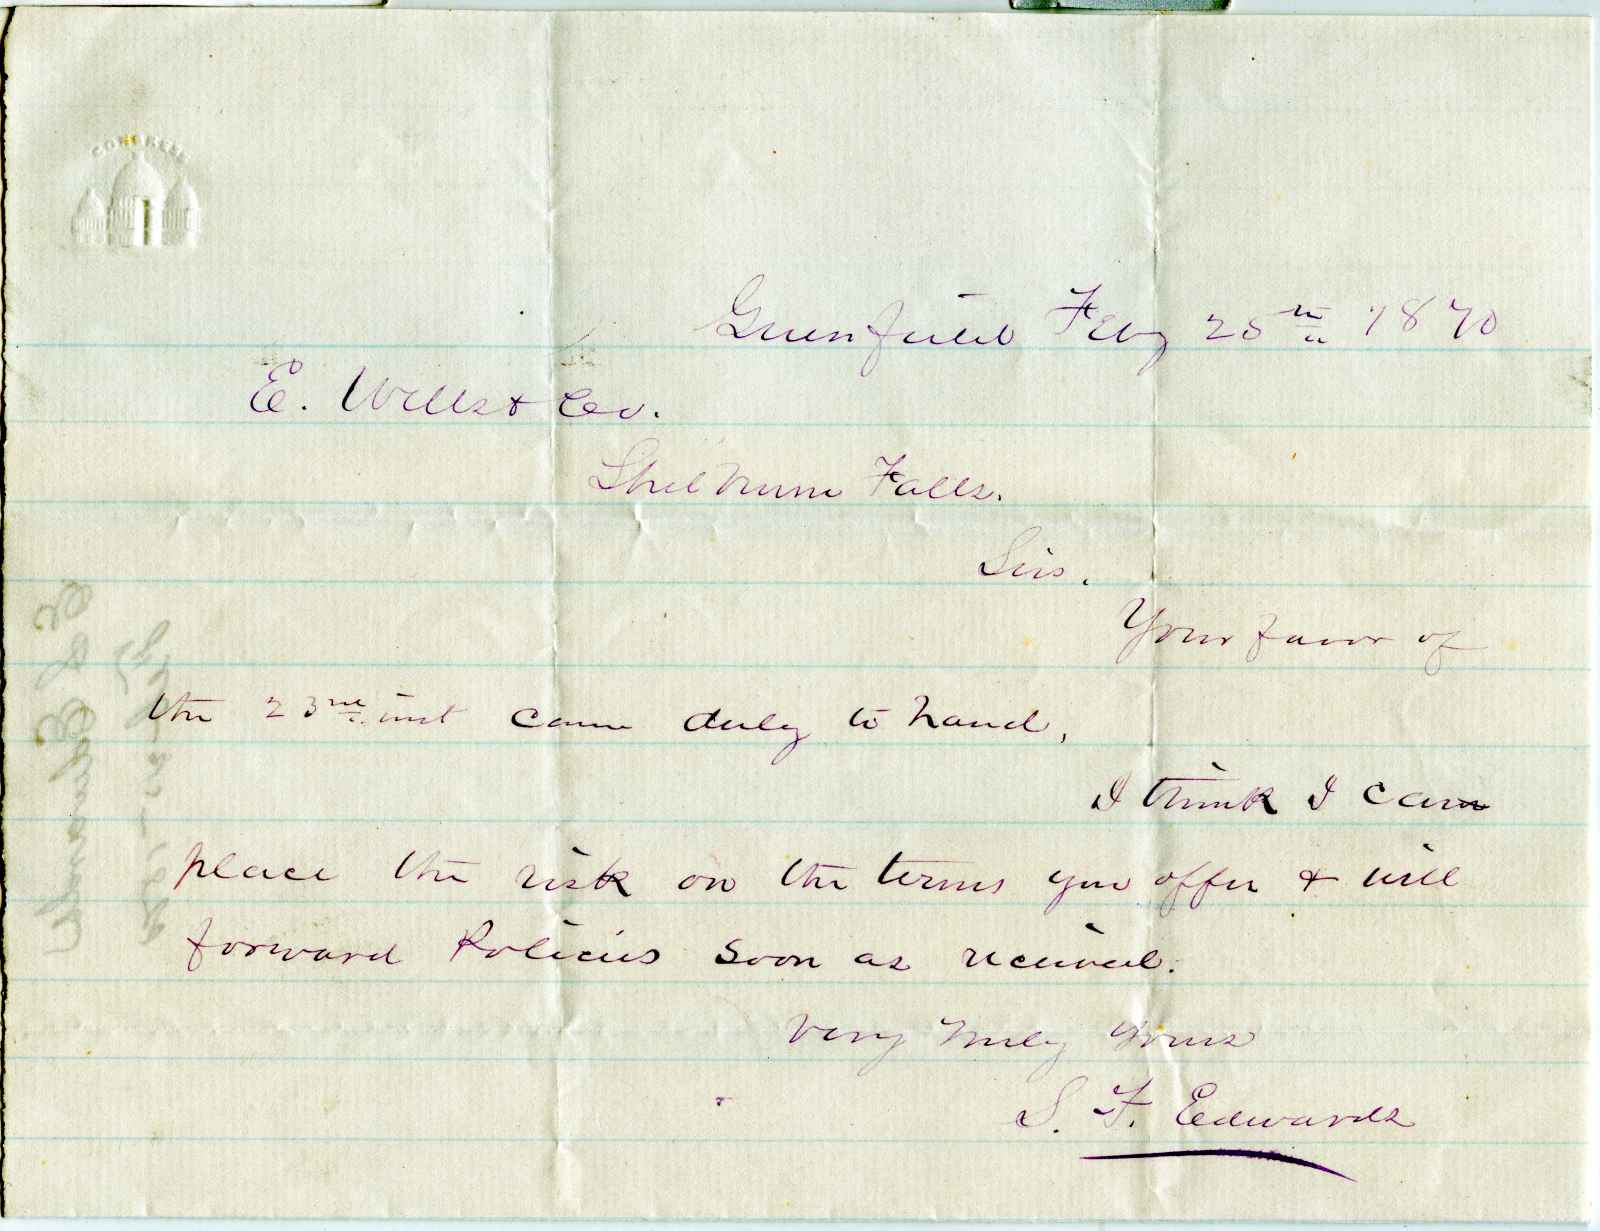 CONGRESS
Greenfield Feby 25th 1870
E. Wells & Co.
Shelburne Falls.
Sirs.
Your favor of
the 23rd inst came duly to hand,
I think I can
place the risk on the terms you offer & will
forward Policies soon as received.
Very truly yours
S. F. Edwards